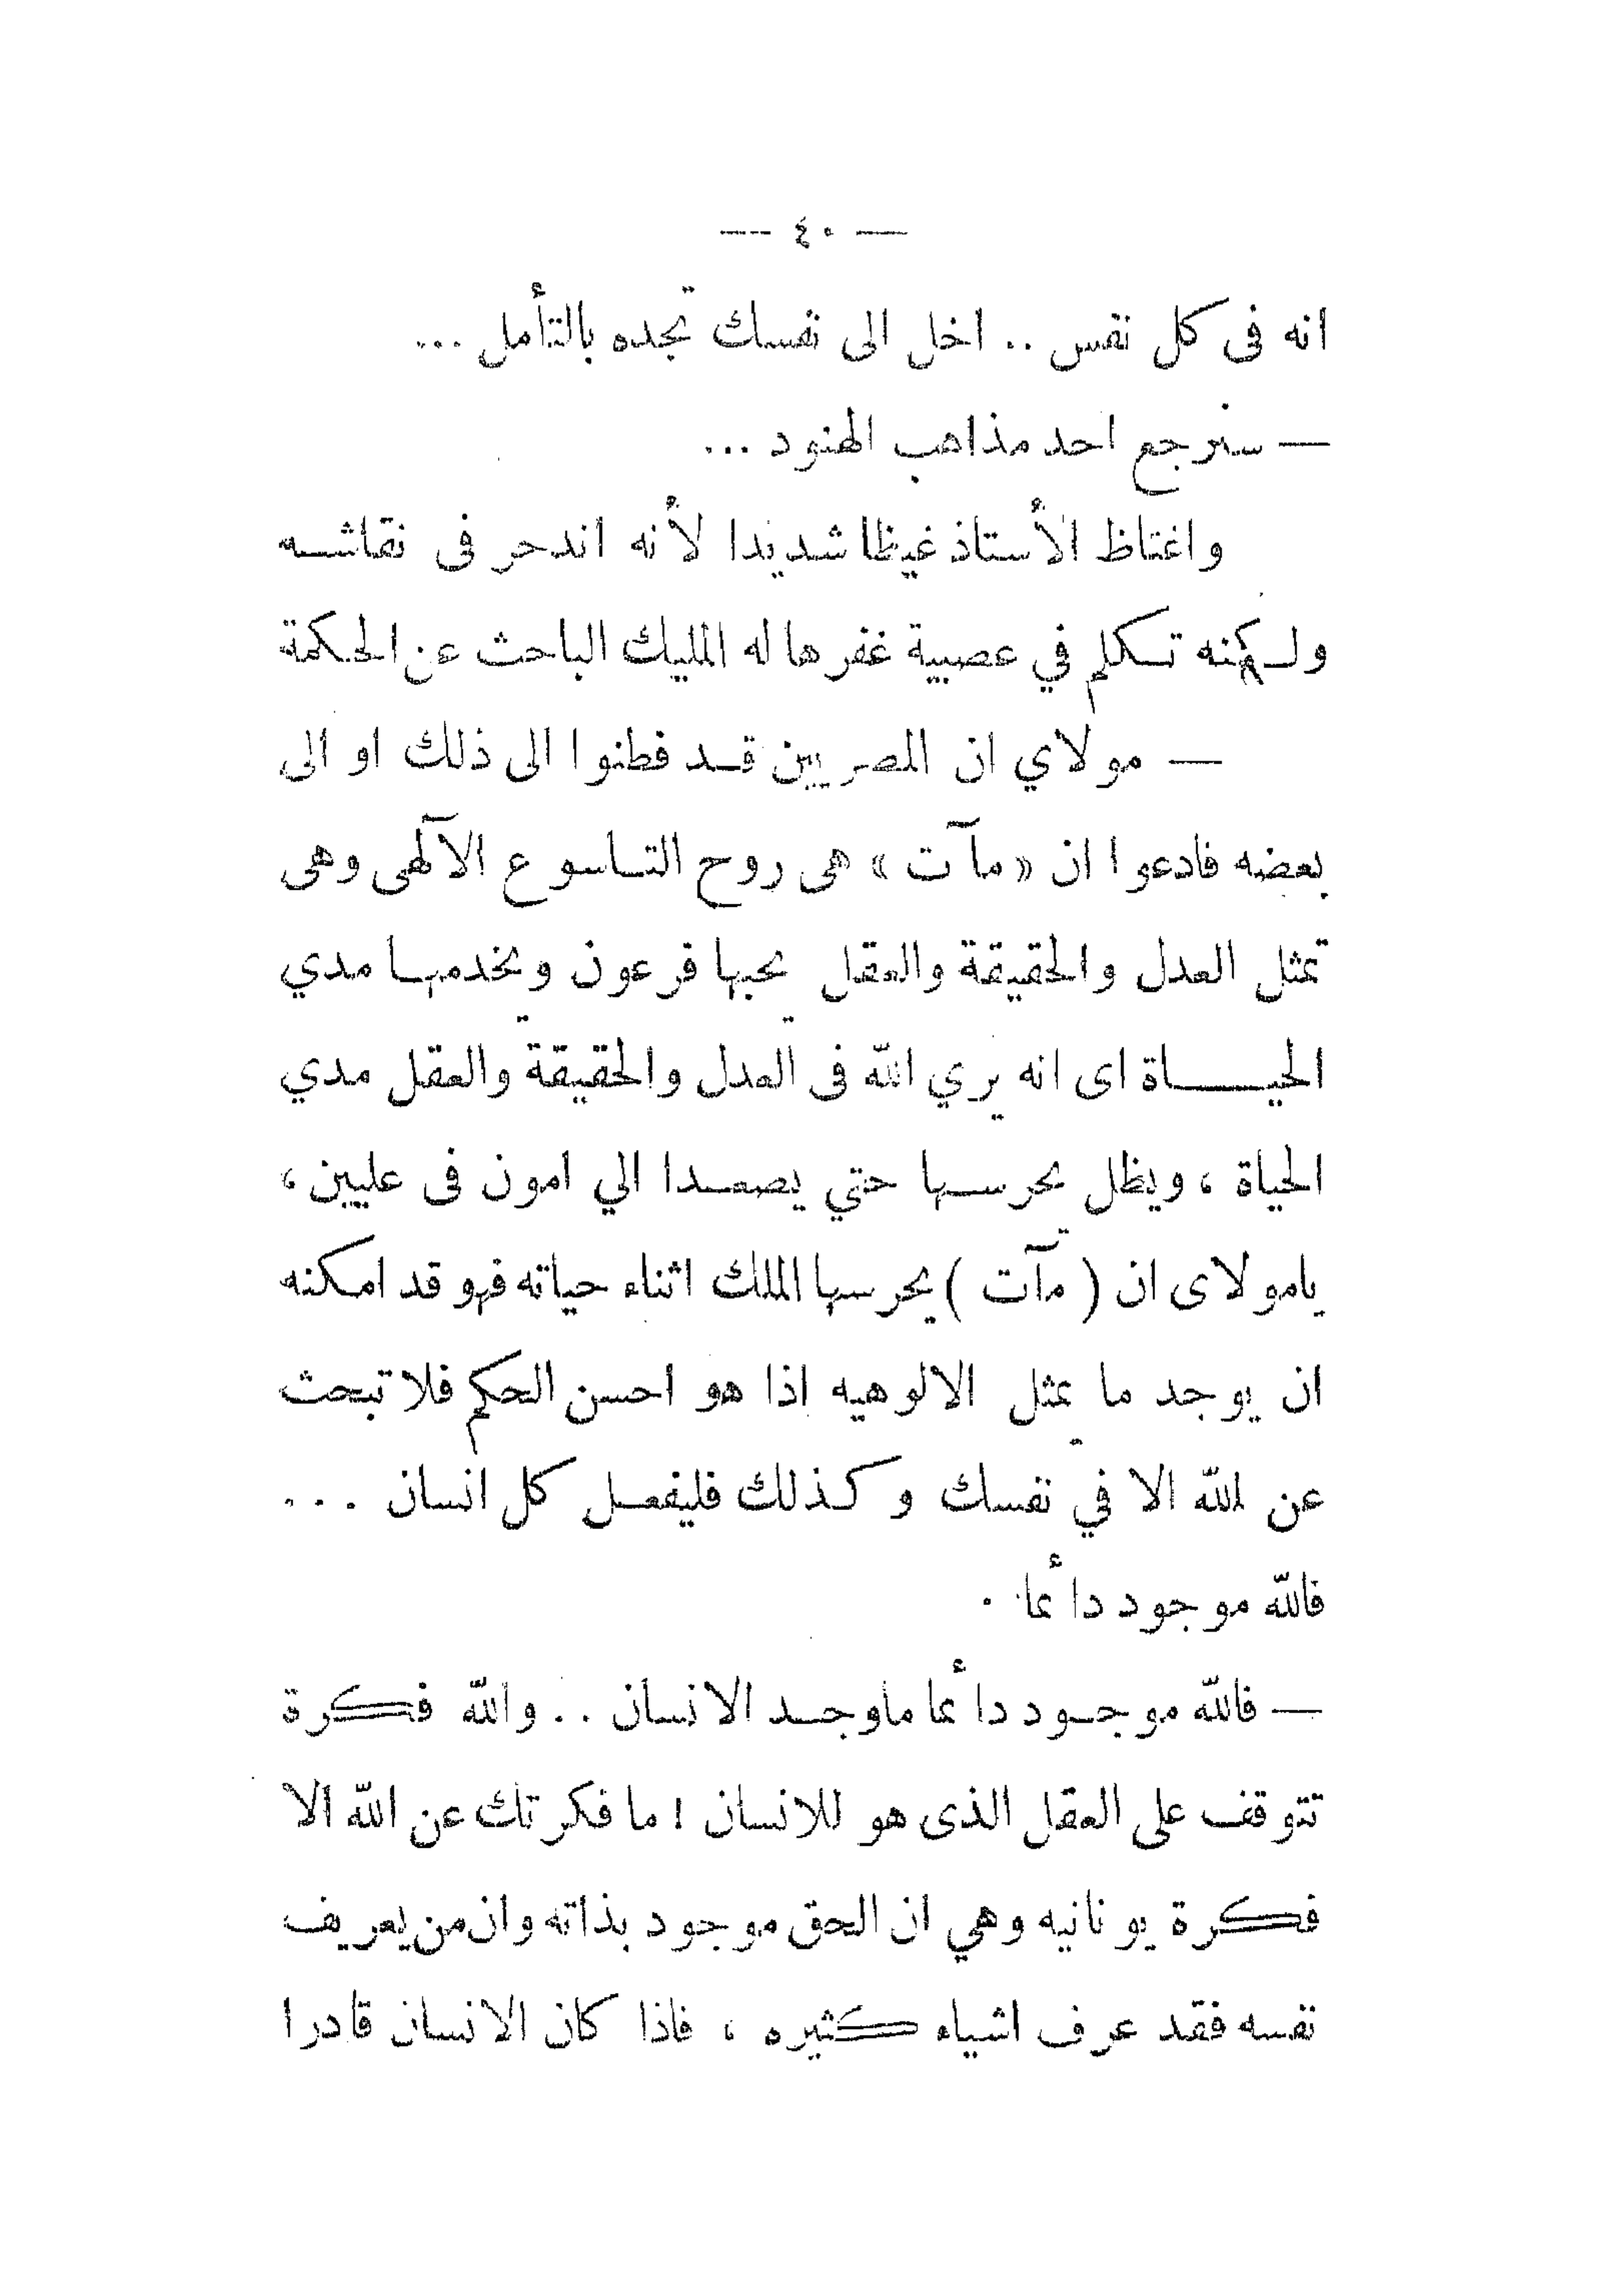 — ٤٠ —
انه فى كل نفس .. اخل الى نفسك تجده بالتأمل ...
— سنرجع احد مذاهب الهنود ...
واغتاظ الأستاذ غيظا شديدا لأنه اندحر فى نقاشه
ولكنه تكلم في عصبية غفرها له المليك الباحث عن الحكمة
— مولاي ان المصريين قد فطنوا الى ذلك او الى
بعضه فادعوا ان « مآت » هى روح التاسوع الآلهى وهى
تمثل العدل والحقيقة والعقل يحبها فرعون ويخدمها مدي
الحياة اى انه يري الله فى العدل والحقيقة والعقل مدي
الحياة ، ويظل يحرسها حتي يصعدا الي امون فى عليين ،
يامولاى ان ( مآت ) يحرسها الملك اثناء حياته فهو قد امكنه
ان يوجد ما يمثل الالوهيه اذا هو احسن الحكم فلا تبحث
عن الله الا في نفسك وكذلك فليفعل كل انسان ...
فالله موجود دائما .
— فالله موجود دائما ماوجد الانسان .. والله فكرة
تتوقف على العقل الذى هو للانسان ! ما فكرتك عن الله الا
فكرة يونانيه وهي ان الحق موجود بذاته وان من يعريف
نفسه فقد عرف اشياء كثيره ، فاذا كان الانسان قادرا